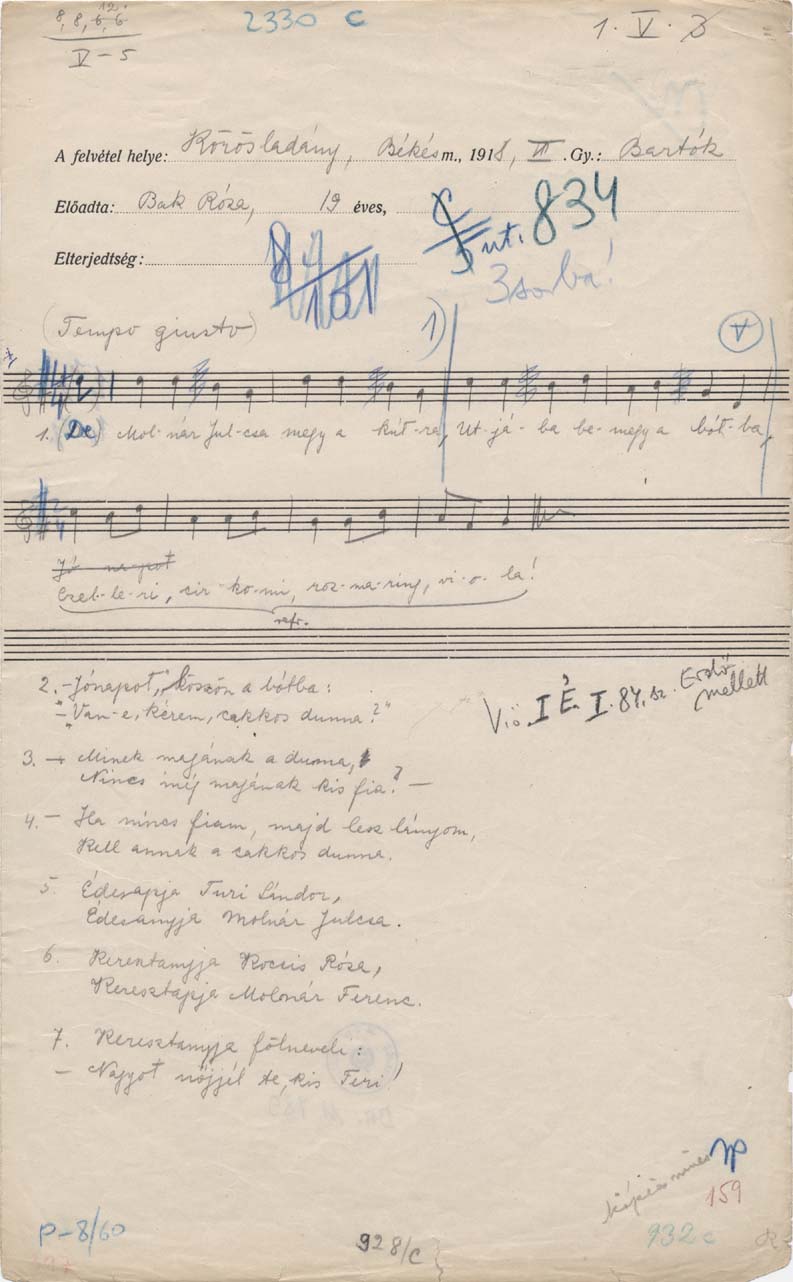 8, 8, 6, 6
12.
V – 5
2330 c
1. V. 3
A felvétel helye: Körösladány, Békés m., 1918, III .Gy.: Bartók
Előadta: Bak Róza, 19 éves,
834
Elterjedtség:
3 sorba!
(Tempo giusto)
1)
V
1. (De) Mol-nár Jul-csa megy a kút-ra, Ut-já-ba be-megy a bót-ba,
Jó na-pot
Czel-le-ri, cir-ko-mi, roz-ma-ring, vi-o-la!
refr.
2. – Jónapot, köszön a bótba:
– "Van-e, kérem, cakkos dunna?"
Vö. I É. I. 84. sz. Erdő
mellett
3. – Minek magának a dunna,
Nincs még magának kis fia? –
4. – Ha nincs fiam, majd lesz lányom,
Kell annak a cakkos dunna.
5. Édesapja Turi Sándor,
Édesanyja Molnár Julcsa.
6. Keresztanyja Kocsis Róza,
Keresztapja Molonár Ferenc.
7. Keresztanyja fölneveli:
– Nagyot nőjjél te, kis Teri!
159
P-8/60
928/c
932 c